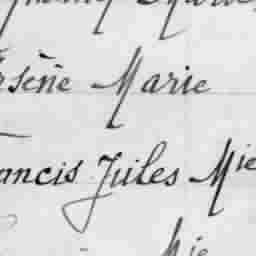 rsène Marie
ancis Jules Mie
Mie